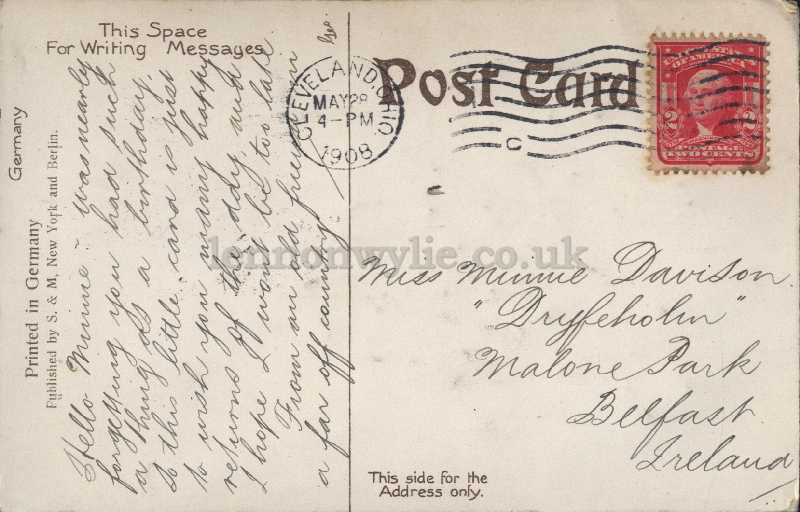 This Space
For Writing Messages
Germany
Printed in Germany
Published by S. & M, New York and Berlin.
Hello Minnie - was nearly
forgetting you had such
a thing as a birthday,
So this little card is just
to wish you many happy
returns of the day and
I hope I wont be too late
From an old friend in
a far off country
Geo.
CLEVELAND, OHIO.
MAY 28
4-PM
1908
C
Post Card
POSTAGE
2 2
TWO CENTS
Miss Minnie Davison
"Dryfeholm"
Malone Park
Belfast
Ireland
This side for the
Address only.
lennonwylie.co.uk